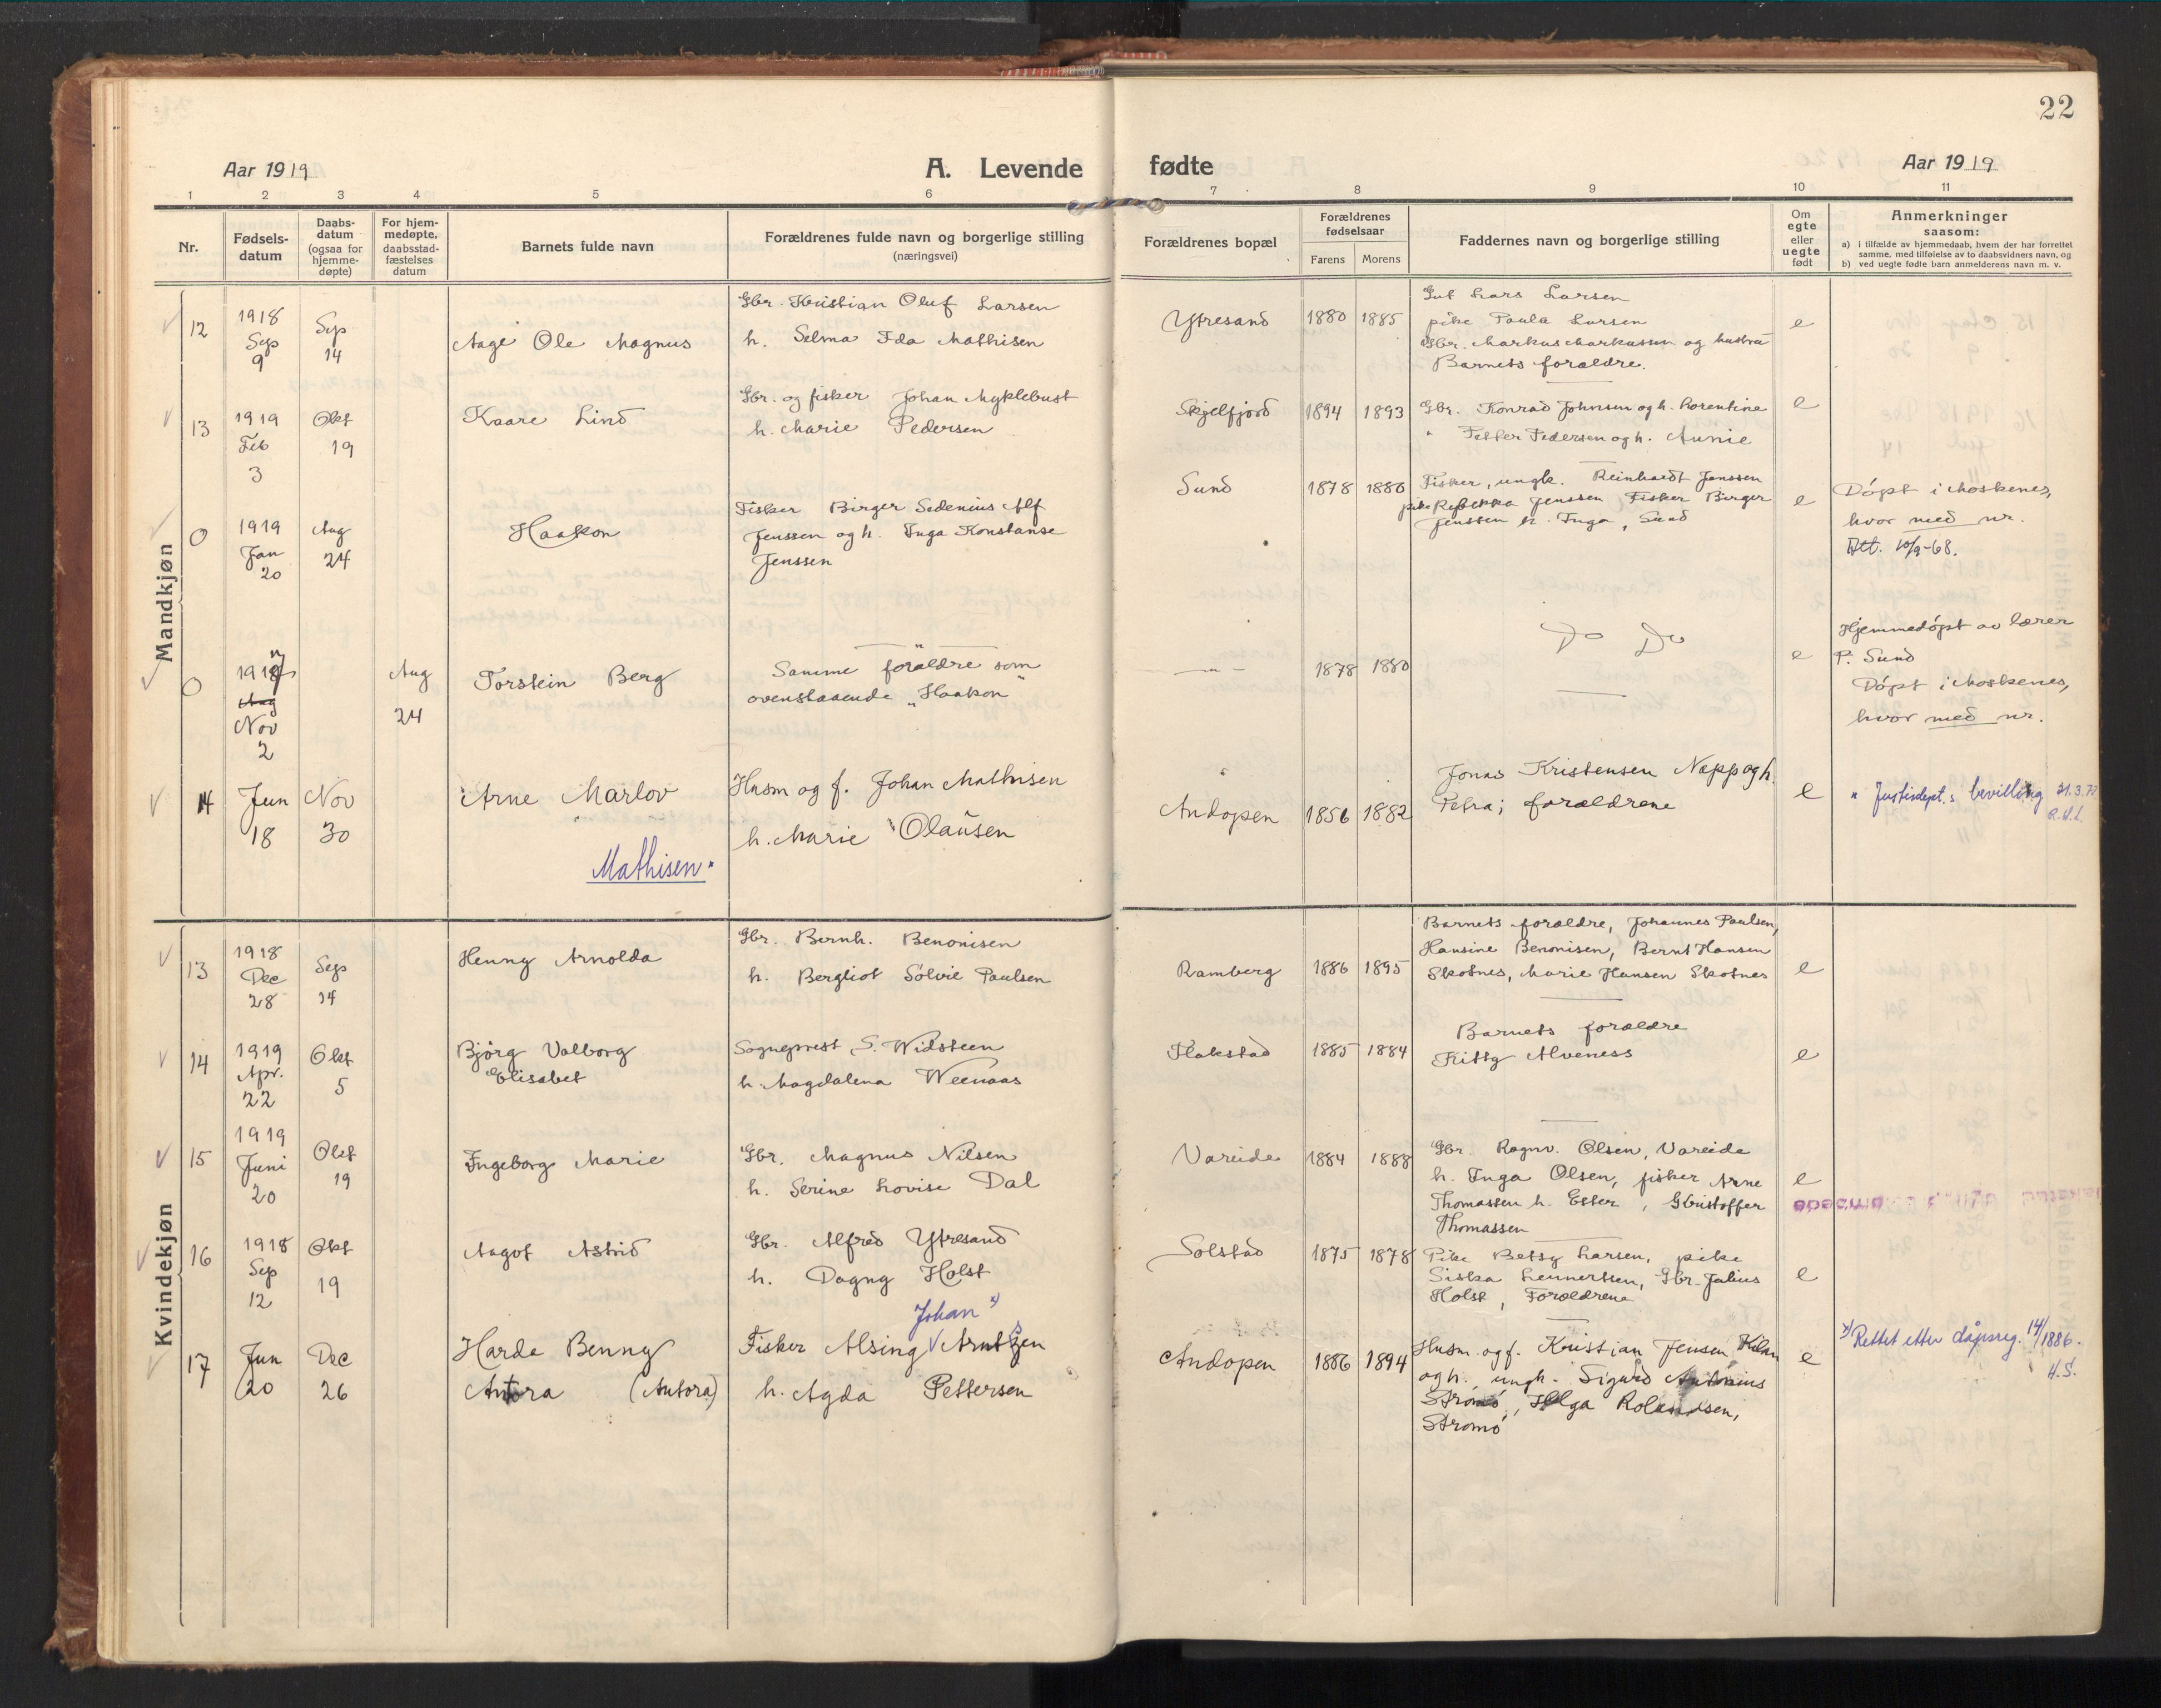 22
Aar 1919
A. Levende fødte
Aar 1919
1 2 3 4 5 6 7 8 9 10 11
Nr.
Fødsels-
datum
Daabs-
datum
(ogsaa for
hjemme-
døpte)
For hjem-
medøpte,
daabsstad-
fæstelses
datum
Barnets fulde navn
Forældrenes fulde navn og borgerlige stilling
(næringsvei)
Forældrenes bopæl
Forældrenes
fødselsaar
Farens Morens
Faddernes navn og borgerlige stilling
Om
egte
eller
uegte
født
Anmerkninger
saasom:
a) i tilfælde av hjemmedaab, hvem der har forrettet
samme, med tilføielse av to daabsvidners navn, og
b) ved uegte fødte barn anmelderens navn m. v.
Mandkjøn
12
1918
Sep
9
Sep
14
Aage Ole Magnus
Gbr. Kristian Oluf Larsen
h. Selma Ida Mathisen
Ytresand
1880 1885
Gut Lars Larsen
pike Paula Larsen
Gbr. Markus Markussen og hustru
Barnets forældre.
e
13
1919
Feb
3
Okt
19
Kaare Lind
Gbr. og fisker Johan Myklebust
h. Marie Pedersen
Skjelfjord
1894 1893
Gbr. Konrad Johnsen og h. Lorentine
" Petter Pedersen og h. Aunie
e
0
1919
Jan
20
Aug
24
Haakon
Fisker Birger Sedenius Alf
Jenssen og h. Inga Konstanse
Jenssen
Sund
1878 1880
Fisker, ungk. Reinhardt Jenssen
pike Rebekka Jenssen Fisker Birger
Jenssen h. Inga, Sund
e
Døpt i Moskenes,
hvor med nr.
Att. 10/9-68.
0
1917
Aug
Nov
2
Aug
24
Torstein Berg
Samme forældre som
ovenstaaende "Haakon"
— " —
1878 1880
Do Do
e
Hjemmedøpt av lærer
P. Sund
Døpt i Moskenes,
hvor med nr.
14
Jun
18
Nov
30
Arne Marlov
Mathisen "
Husm og f. Johan Mathisen
h. Marie Olausen
Andopen
1856 1882
Jonas Kristensen Napp og h.
Petra; forældrene
e
" Justisdept.s bevilling 21.3.72
Kvindekjøn
13
1918
Dec
28
Sep
14
Henny Arnolda
Gbr. Bernh. Benonisen
h. Bergliot Solvie Paulsen
Ramberg
1886 1895
Barnets forældre, Johannes Paulsen,
Hansine Benonisen, Bernt Hansen
Skotnes, Marie Hansen Skotnes
e
14
1919
Apr.
22
Okt
5
Bjørg Valborg
Elisabet
Sogneprest S. Widsteen
h. Magdalena Weenaas
Flakstad
1885 1884
Barnets forældre
Kitty Alveness
e
15
1919
Juni
20
Okt
19
Ingeborg Marie
Gbr. Magnus Nilsen
h. Serine Lovise Dal
Vareide
1884 1888
Gbr. Ragnv. Olsen, Vareide
h. Inga Olsen, fisker Arne
Thomassen h. Ester, Kristoffer
Thomassen
e
16
1918
Sep
12
Okt
19
Aagot Astrid
Gbr. Alfred Ytresand
h. Dagny Holst
Solstad
1875 1878
Pike Betsy Larsen, pike
Siska Lennertsen, Gbr. Julius
Holst, Forældrene
e
17
Jun
20
Dec
26
Harda Benny
Antora (Antora)
Johan x)
Fisker Alsing Arntzen
h. Agda Pettersen
Andopen
1886 1894
Husm. og f. Kristian Jensen Kilan
og h. ungk. Sigurd Antonius
Strømø, Helga Rolandsen,
Strømø
e
x) Rettet etter dåpsreg. 14/1886.
H.S.